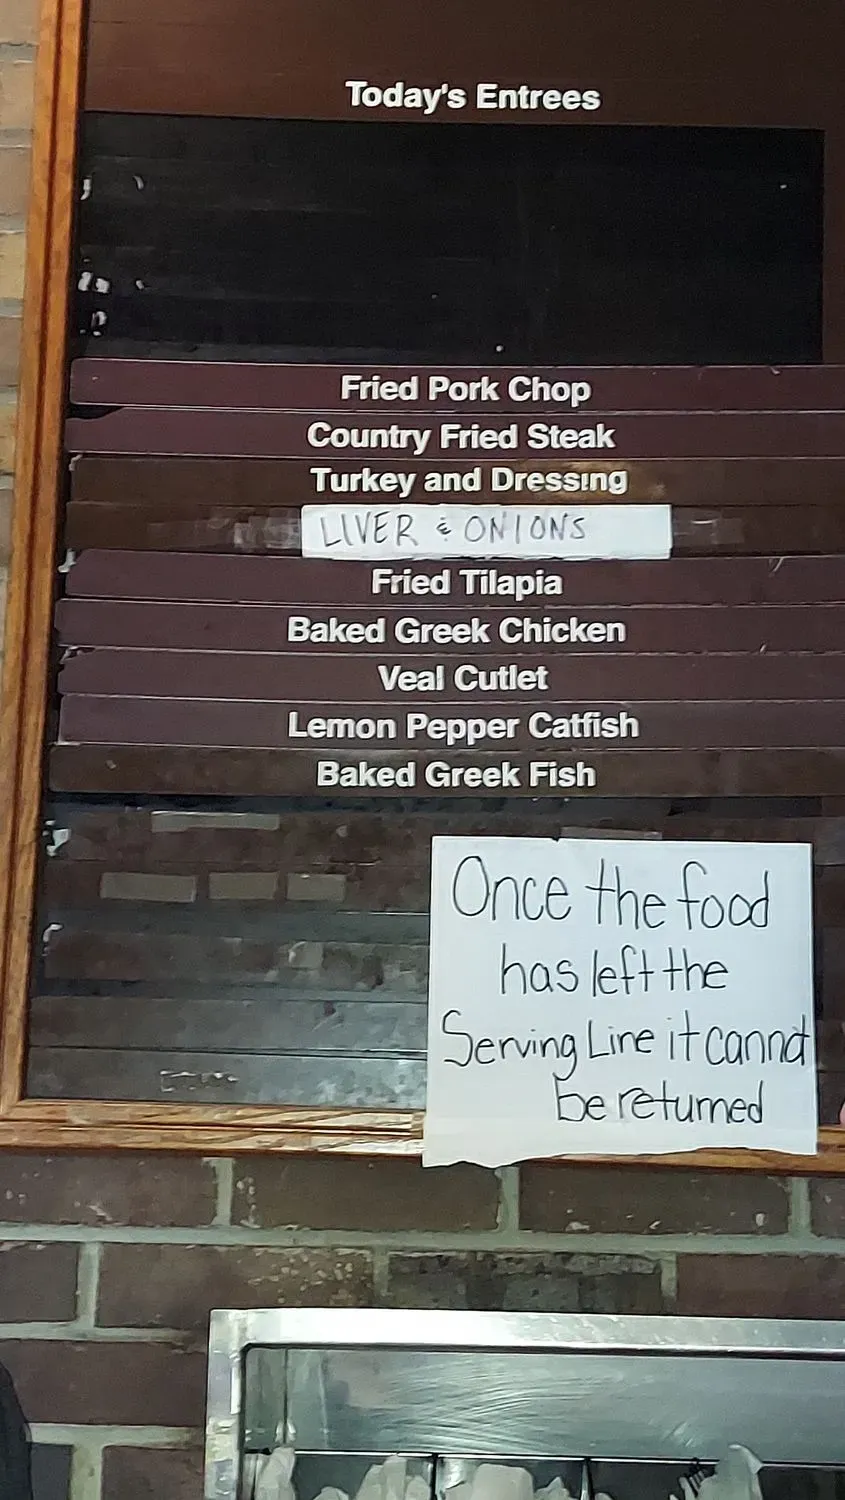 Today's Entrees
Fried Pork Chop
Country Fried Steak
Turkey and Dressing
LIVER & ONIONS
Fried Tilapia
Baked Greek Chicken
Veal Cutlet
Lemon Pepper Catfish
Baked Greek Fish
Once the food
has left the
Serving Line it cannot
be returned